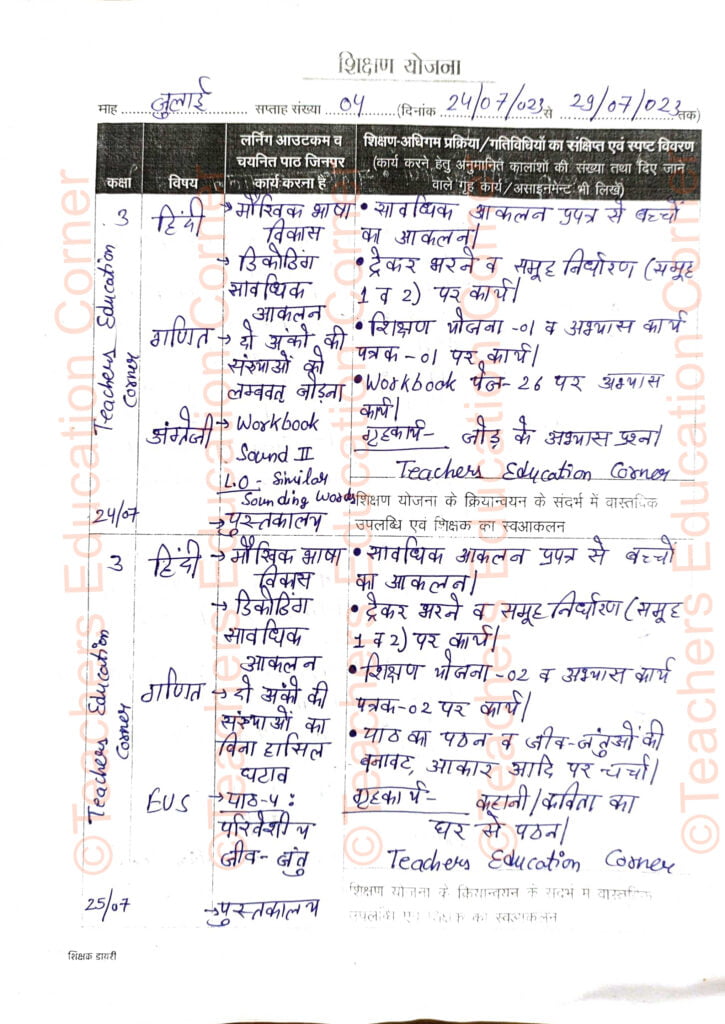 शिक्षण योजना
माह जुलाई सप्ताह संख्या 04 (दिनांक 24/07/023 से 29/07/023 तक)
कक्षा
विषय
लर्निंग आउटकम व
चयनित पाठ जिनपर
कार्य करना है
शिक्षण-अधिगम प्रक्रिया/गतिविधियों का संक्षिप्त एवं स्पष्ट विवरण
(कार्य करने हेतु अनुमानित कालांशों की संख्या तथा दिए जाने
वाले गृह कार्य/असाइनमेन्ट भी लिखें)
3
हिंदी
→ मौखिक भाषा
विकास
→ डिकोडिंग
सावधिक
आकलन
गणित
→ दो अंको की
संख्याओं को
लम्बवत् जोड़ना
अंग्रेजी
→ Workbook
Sound II
L.O - Similar
Sounding Words
→ पुस्तकालय
24/07
• सावधिक आकलन प्रपत्र से बच्चों
का आकलन।
• ट्रेकर भरने व समूह निर्धारण (समूह
1 व 2) पर कार्य।
• शिक्षण योजना -01 व अभ्यास कार्य
पत्रक -01 पर कार्य।
• Workbook पेज- 26 पर अभ्यास
कार्य।
गृहकार्य- जोड़ के अभ्यास प्रश्न।
Teachers Education Corner
शिक्षण योजना के क्रियान्वयन के संदर्भ में वास्तविक
उपलब्धि एवं शिक्षक का स्वआकलन
Teachers Education
Corner
3
हिंदी
→ मौखिक भाषा
विकास
→ डिकोडिंग
सावधिक
आकलन
गणित
→ दो अंको की
संख्याओं का
बिना हासिल
घटाव
EVS
→ पाठ-4 :
परिवेशीय
जीव-जंतु
→ पुस्तकालय
25/07
• सावधिक आकलन प्रपत्र से बच्चों
का आकलन।
• ट्रेकर भरने व समूह निर्धारण (समूह
1 व 2) पर कार्य।
• शिक्षण योजना -02 व अभ्यास कार्य
पत्रक-02 पर कार्य।
• पाठ का पठन व जीव-जंतुओं की
बनावट, आकार आदि पर चर्चा।
गृहकार्य- कहानी/कविता का
घर से पठन।
Teachers Education Corner
शिक्षण योजना के क्रियान्वयन के संदर्भ में वास्तविक
उपलब्धि एवं शिक्षक का स्वआकलन
Teachers Education
Corner
शिक्षक डायरी
© Teachers Education Corner
© Teachers Education Corner
© Teachers Education Corner
© Teachers Education Corner
© Teachers Education Corner